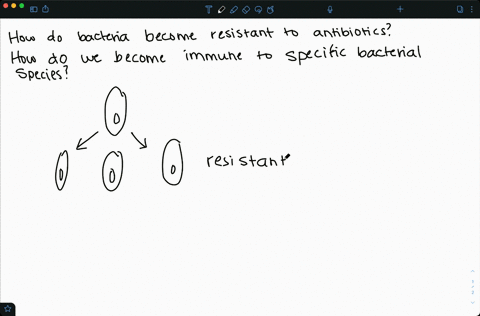 How do bacteria become resistant to antibiotics?
How do we become immune to specific bacterial
species?
resistant